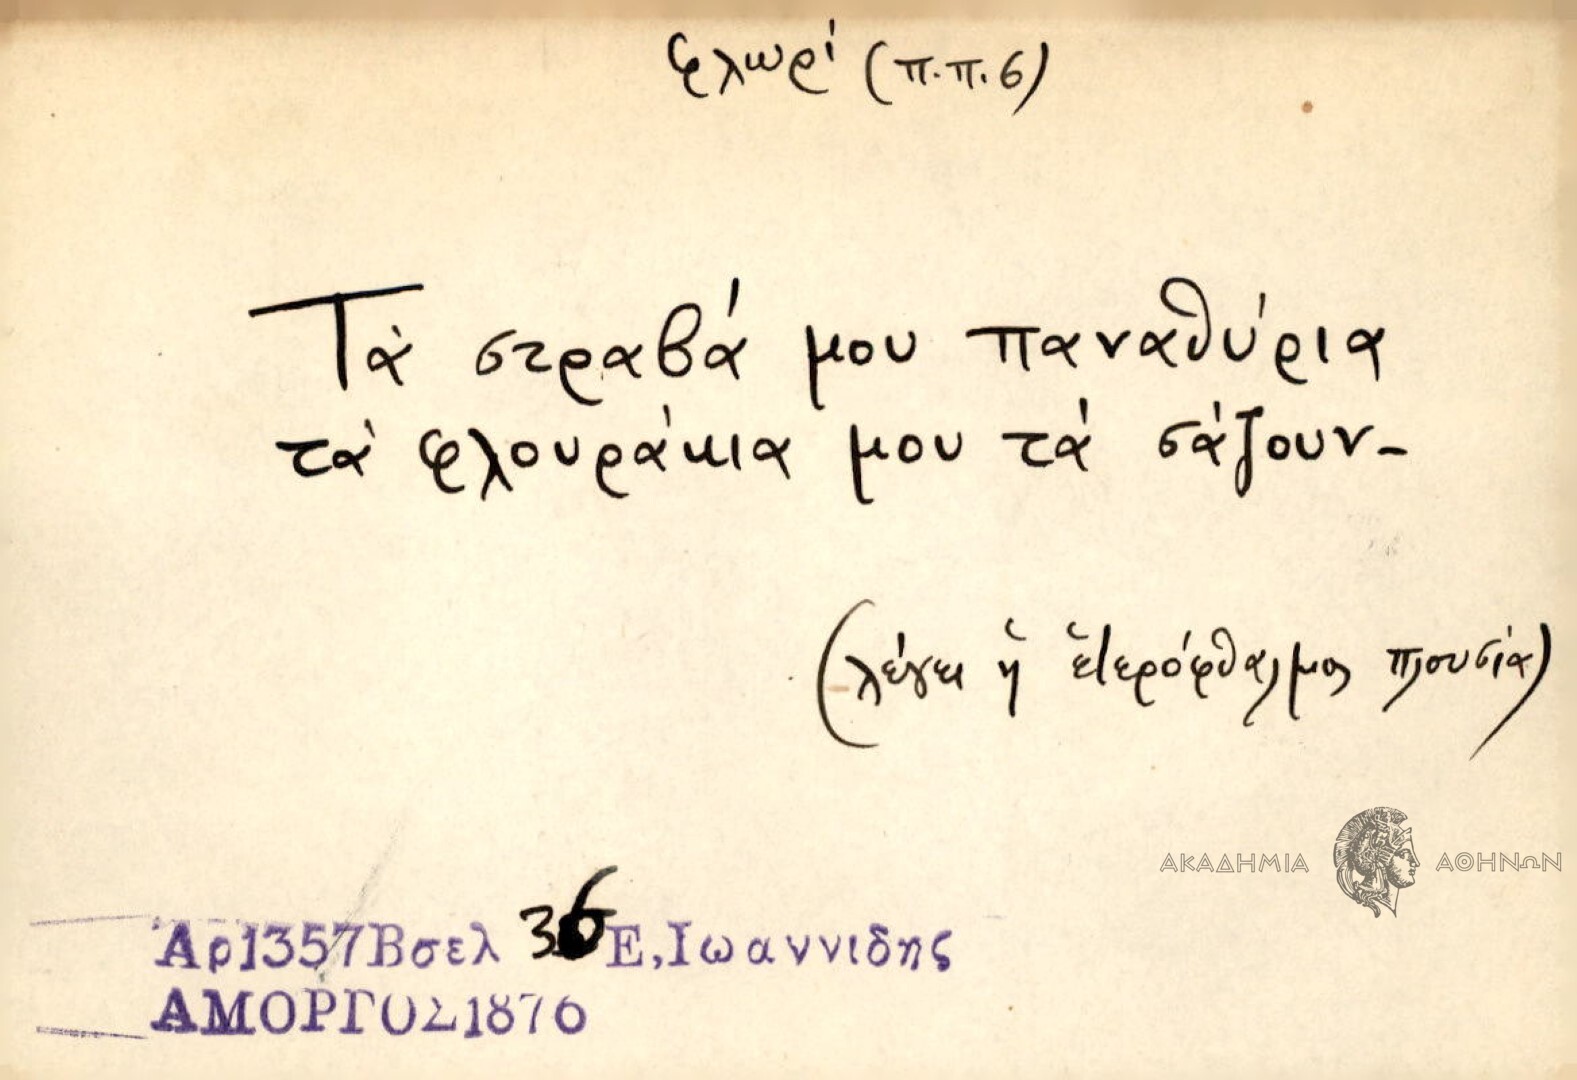 φλωρί (π.π. 6)
Τὰ στραβά μου παναθύρια
τὰ φλουράκια μου τά σάζουν-
(λέγει ἡ ἑτερόφθαλμος πλουσία)
ΑΚΑΔΗΜΙΑ ΑΘΗΝΩΝ
Ἀρ1357Βσελ 36 Ε,Ιωαννιδης
ΑΜΟΡΓΟΣ1876